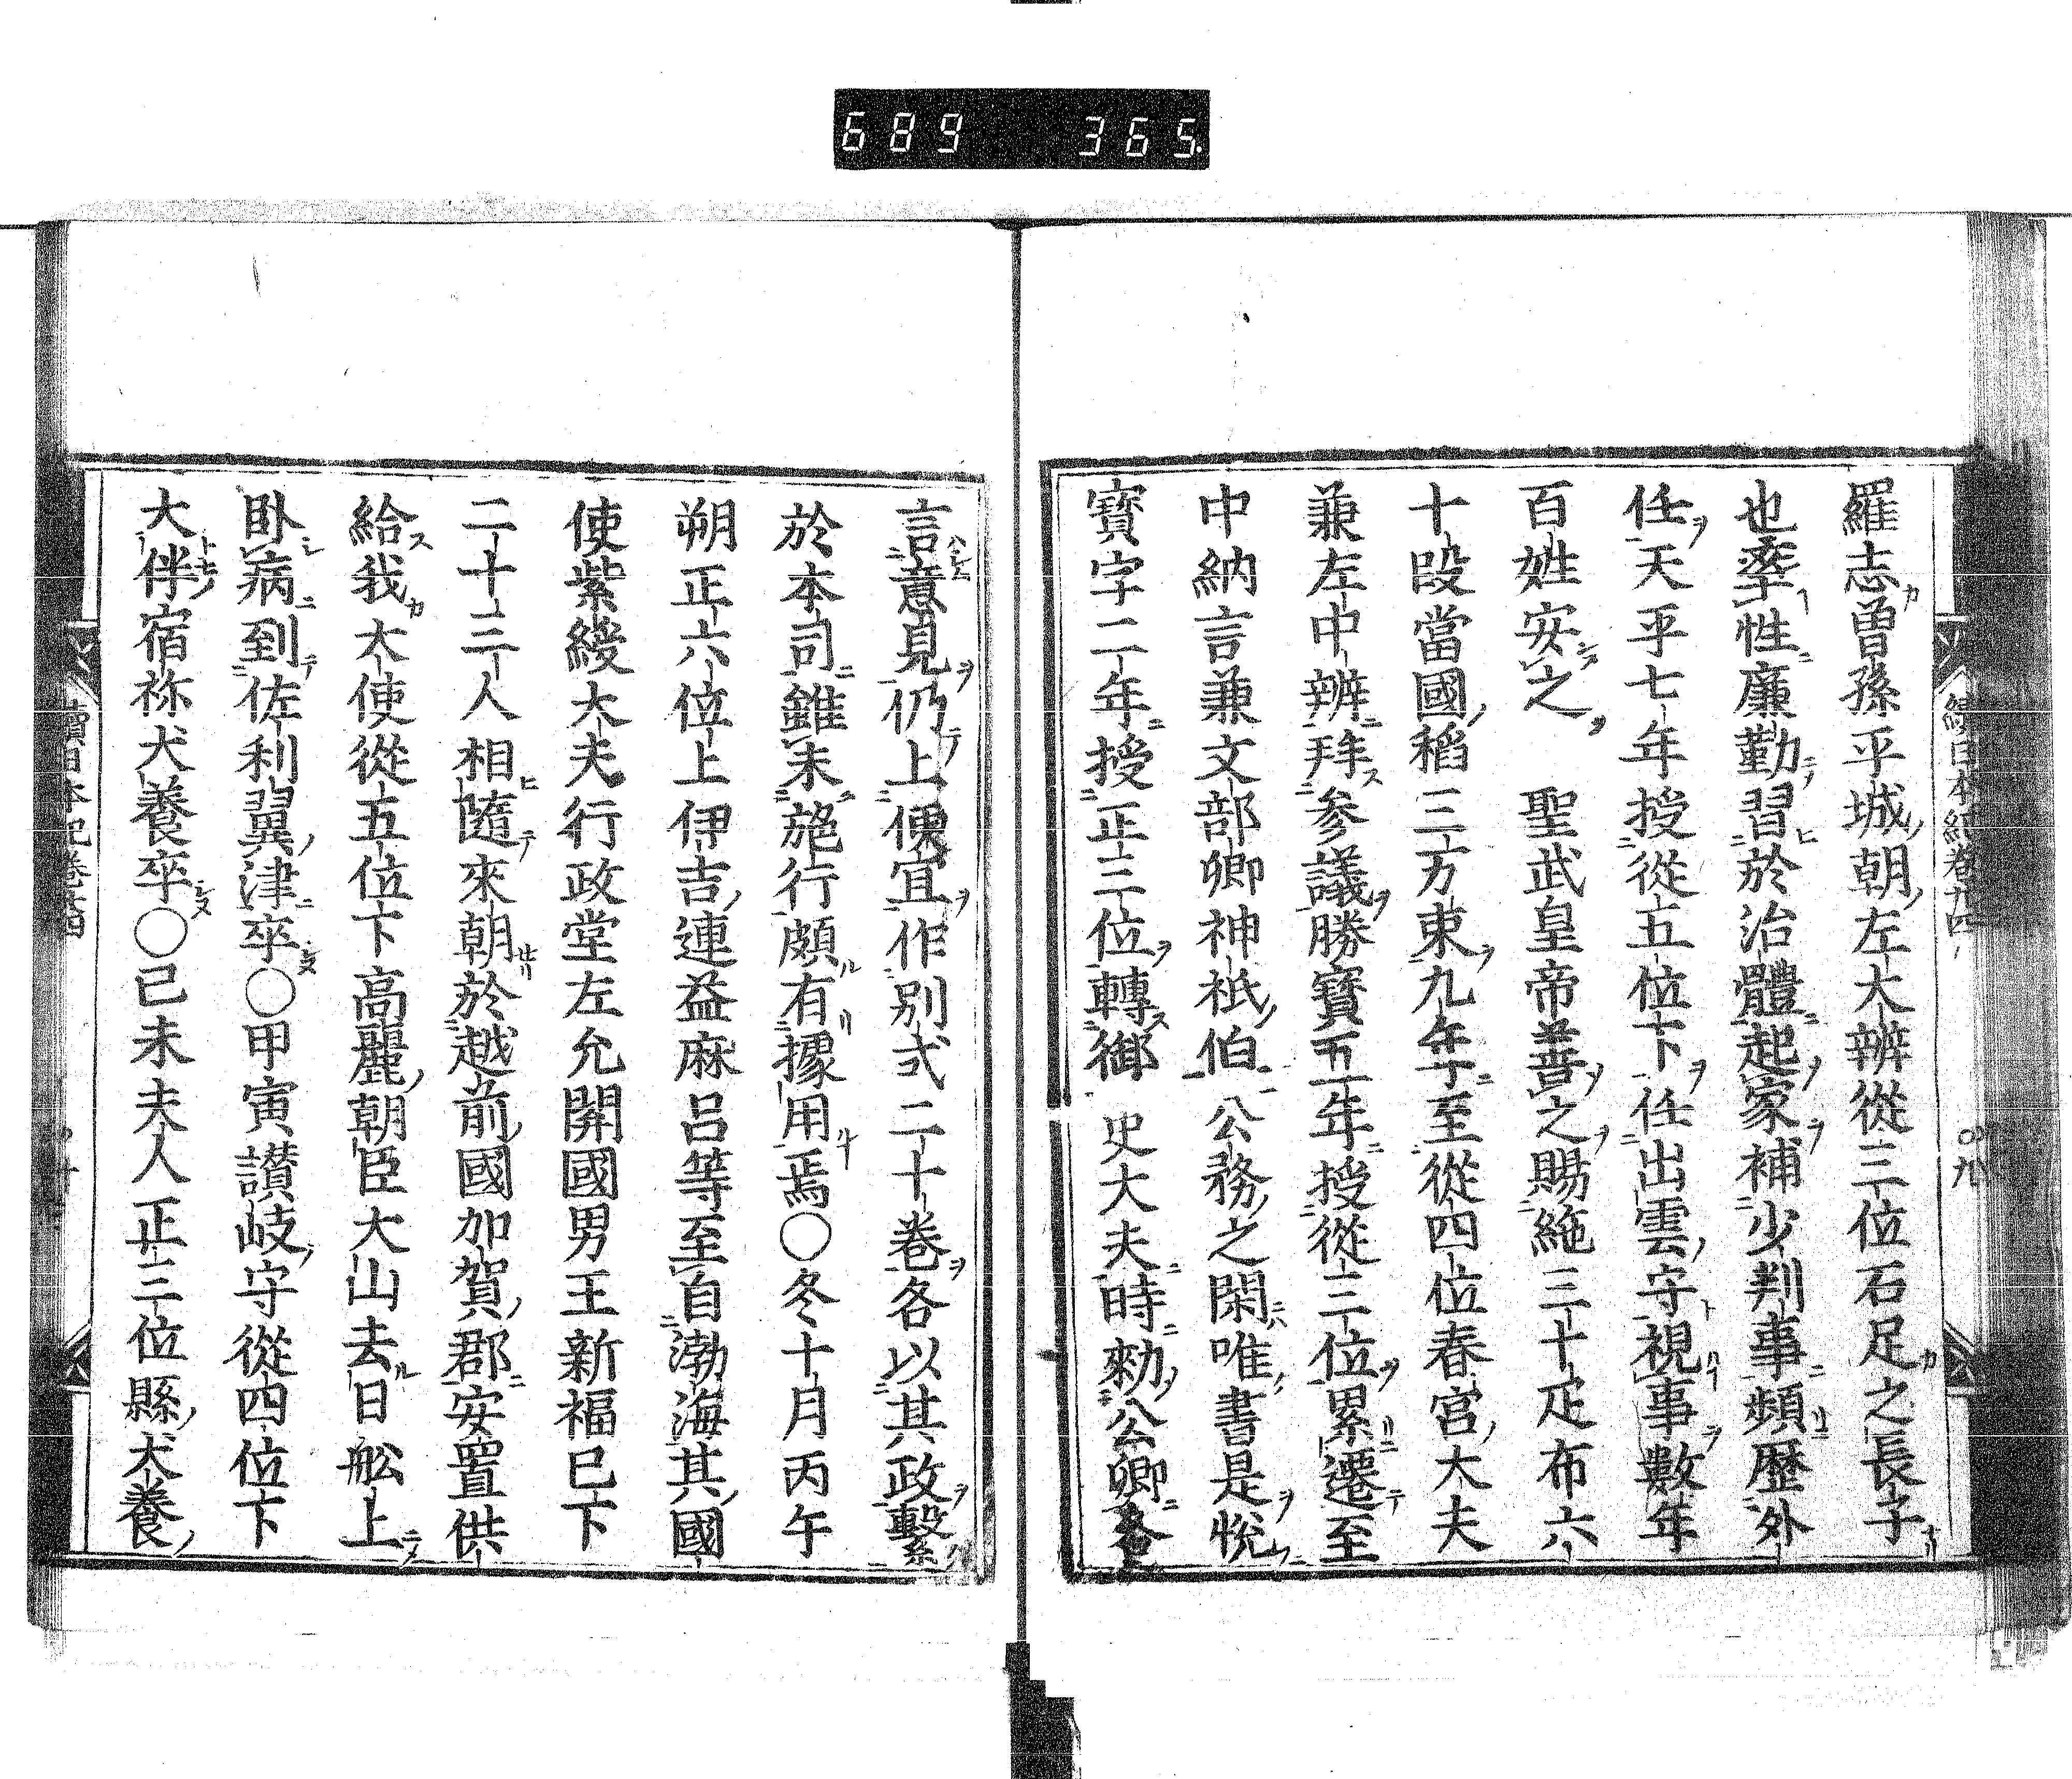 689 365
續日本紀卷廿四
羅志曽孫平城朝左大辨從三位石足之長子
也率性廉勤習於治體起家補少判事頻歷外
任天平七年授從五位下任出雲守視事數年
百姓安之 聖武皇帝善之賜絁三十疋布六
十段當國稻三万束九年至從四位春宮大夫
兼左中辨拜參議勝寶五年授從三位累遷至
中納言兼文部卿神祇伯公務之閑唯書是悅
寶字二年授正三位轉御史大夫時勑公卿各
言意見仍上便宜作別式二十卷各以其政繫
於本司雖未施行頗有據用焉○冬十月丙午
朔正六位上伊吉連益麻呂等至自渤海其國
使紫綬大夫行政堂左允開國男王新福已下
二十三人相隨來朝於越前國加賀郡安置供
給我大使從五位下高麗朝臣大山去日舩上
卧病到佐利翼津卒○甲寅讃岐守從四位下
大伴宿祢犬養卒○己未夫人正三位縣犬養
續日本紀卷廿四